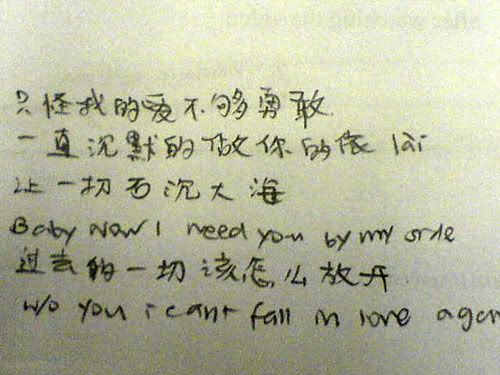 只怪我的爱不够勇敢
一直沉默的做你的依 lài
让一切石沉大海
Baby Now I need you by my side
过去的一切该怎么放开
w/o you i cant fall in love again